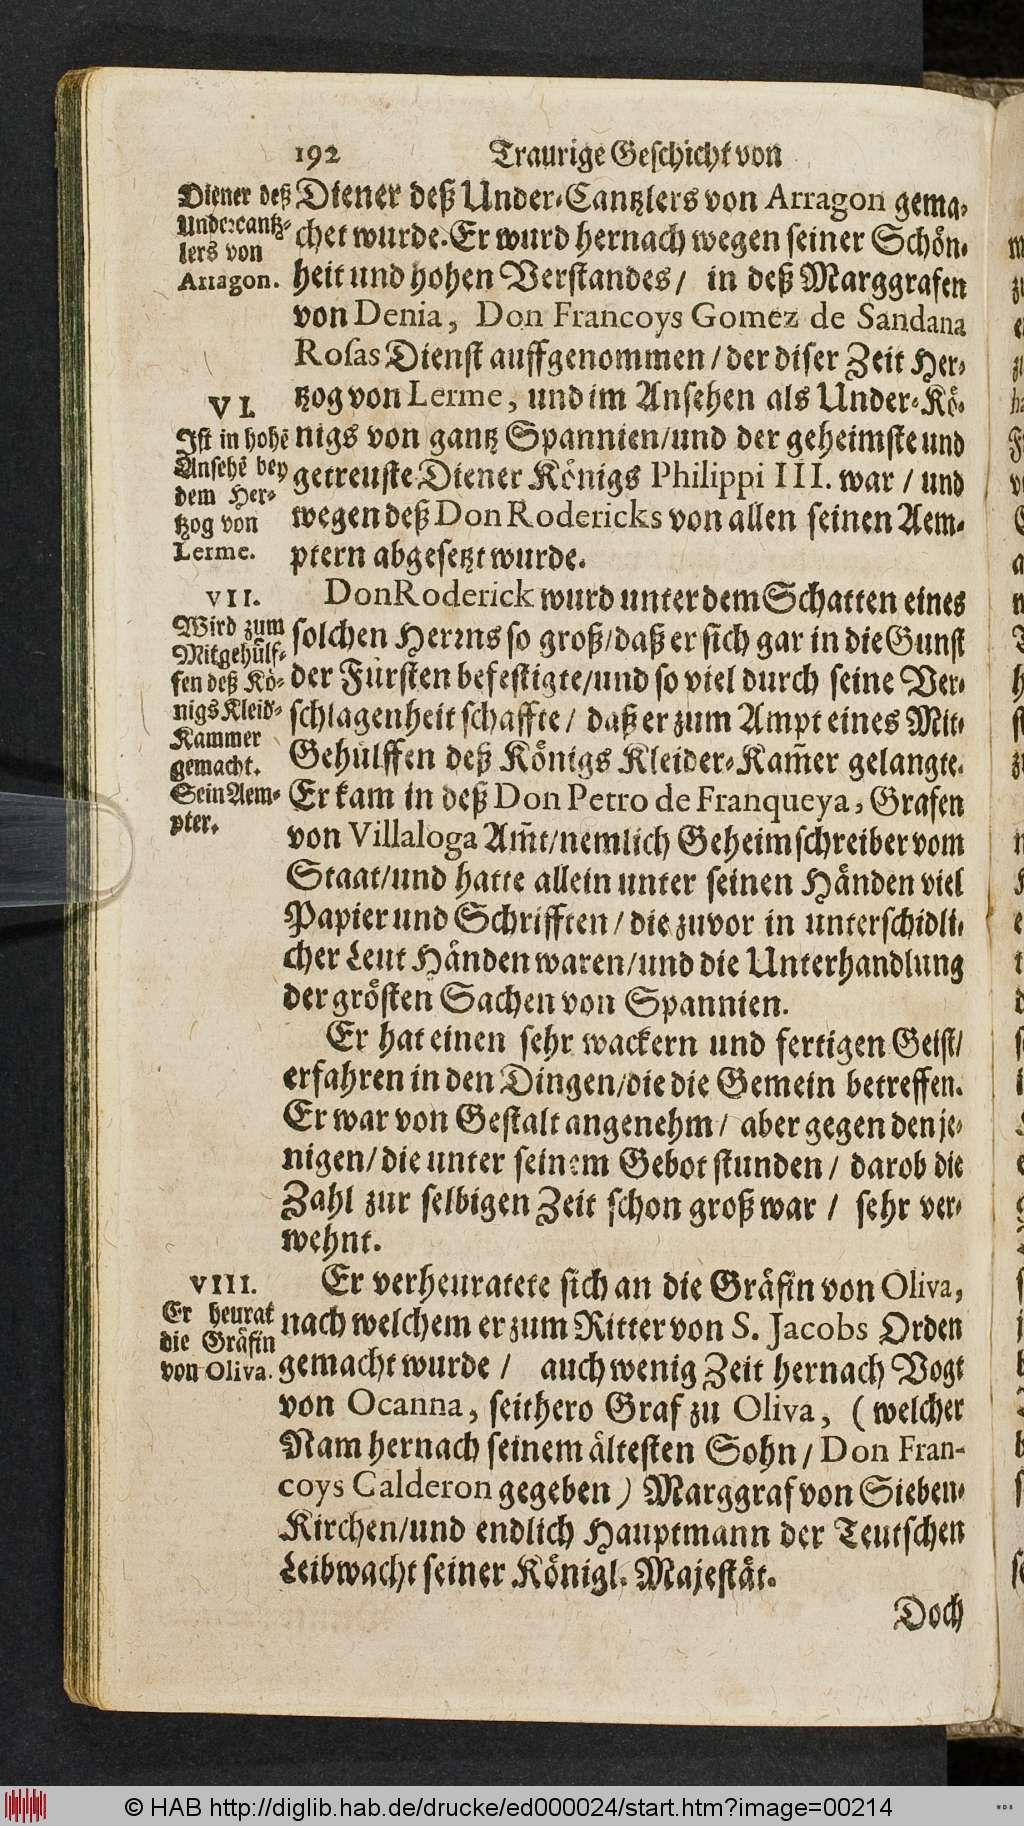 192 Traurige Geschicht von
Diener deß
Undercantz-
lers von
Arragon.
Diener deß Under-Cantzlers von Arragon gema-
chet wurde. Er wurd hernach wegen seiner Schön-
heit und hohen Verstandes / in deß Marggrafen
von Denia, Don Francoys Gomez de Sandana
Rosas Dienst auffgenommen / der diser Zeit Her-
tzog von Lerme, und im Ansehen als Under-Kö-
nigs von gantz Spannien / und der geheimste und
getreuste Diener Königs Philippi III. war / und
wegen deß Don Rodericks von allen seinen Aem-
ptern abgesetzt wurde.
VI.
Ist in hohẽ
Ansehẽ bey
dem Her-
tzog von
Lerme.
Don Roderick wurd unter dem Schatten eines
solchen Herrns so groß / daß er sich gar in die Gunst
der Fürsten befestigte / und so viel durch seine Ver-
schlagenheit schaffte / daß er zum Ampt eines Mit-
Gehülffen deß Königs Kleider-Kam̃er gelangte.
Er kam in deß Don Petro de Franqueya, Grafen
von Villaloga Am̃t / nemlich Geheimschreiber vom
Staat / und hatte allein unter seinen Händen viel
Papier und Schrifften / die zuvor in unterschidli-
cher Leut Händen waren / und die Unterhandlung
der grösten Sachen von Spannien.
VII.
Wird zum
Mitgehülf-
fen deß Kö-
nigs Kleid-
Kammer
gemacht.
Sein Aem-
pter.
Er hat einen sehr wackern und fertigen Geist /
erfahren in den Dingen / die die Gemein betreffen.
Er war von Gestalt angenehm / aber gegen denje-
nigen / die unter seinem Gebot stunden / darob die
Zahl zur selbigen Zeit schon groß war / sehr ver-
wehnt.
VIII.
Er heurat
die Gräfin
von Oliva.
Er verheuratete sich an die Gräfin von Oliva,
nach welchem er zum Ritter von S. Jacobs Orden
gemacht wurde / auch wenig Zeit hernach Vogt
von Ocanna, seithero Graf zu Oliva, ( welcher
Nam hernach seinem ältesten Sohn / Don Fran-
coys Calderon gegeben ) Marggraf von Sieben-
Kirchen / und endlich Hauptmann der Teutschen
Leibwacht seiner Königl. Majestät.
Doch
© HAB http://diglib.hab.de/drucke/ed000024/start.htm?image=00214